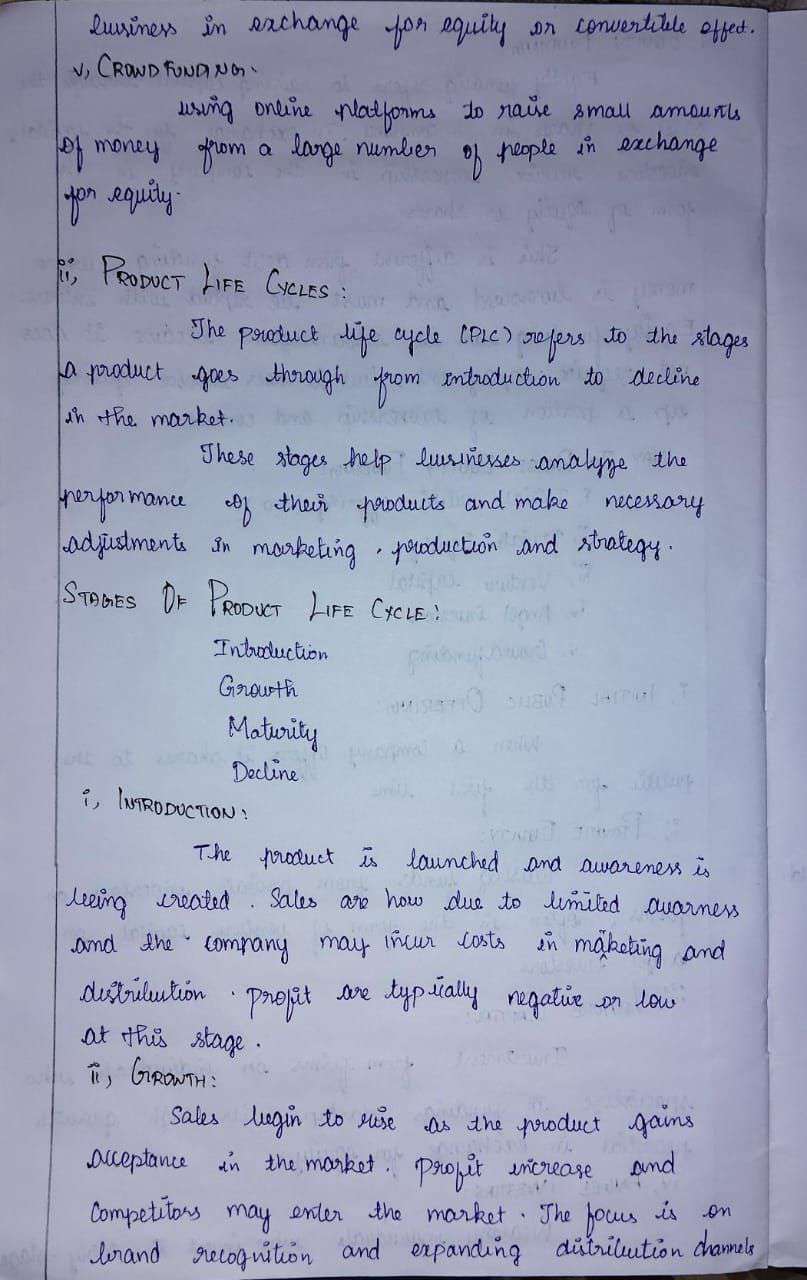 business in exchange for equity or convertible effect.
v, CROWDFUNDING.
using online platforms to raise small amounts
of money from a large number of people in exchange
for equity.
ii, PRODUCT LIFE CYCLES:
The product life cycle (PLC) refers to the stages
a product goes through from introduction to decline
in the market.
These stages help businesses analyze the
performance of their products and make necessary
adjustments in marketing, production and strategy.
STAGES OF PRODUCT LIFE CYCLE:
Introduction
Growth
Maturity
Decline
i, INTRODUCTION:
The product is launched and awareness is
being created. Sales are how due to limited awarness
and the company may incur costs in marketing and
distribution. profit are typically negative or low
at this stage.
ii, GROWTH:
Sales begin to rise as the product gains
acceptance in the market. profit increase and
competitors may enter the market. The focus is on
brand recognition and expanding distribution channels